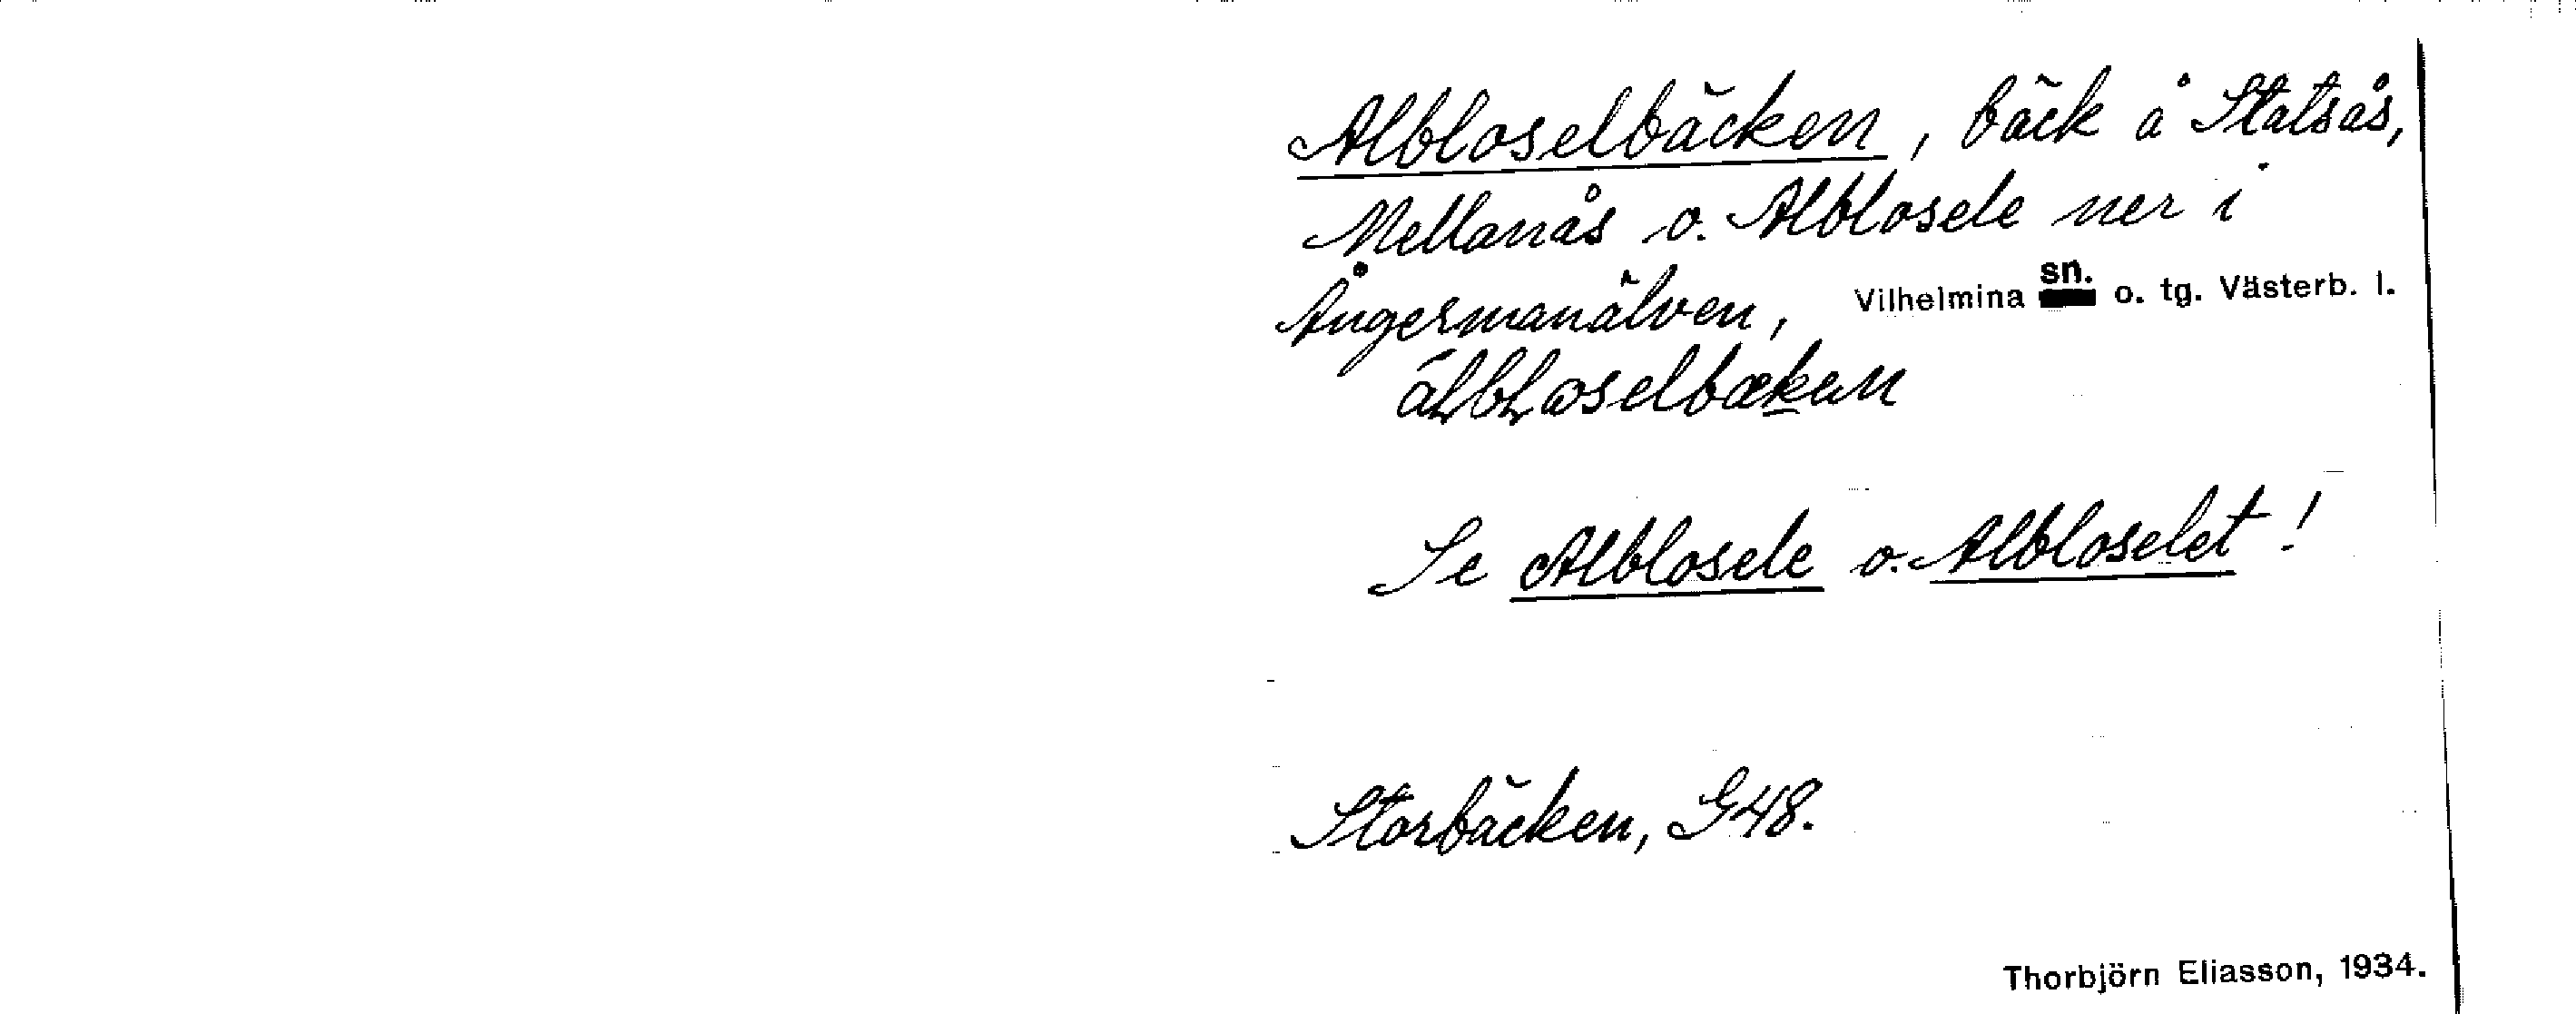 Albloselbäcken, bäck å Statsås,
Mellanås o. Alblosele ner i
Ångermanälven, Vilhelmina sn. o. tg. Västerb. l.
Se Alblosele o. Albloselet!
Storbäcken, G48.
Thorbjörn Eliasson, 1934.